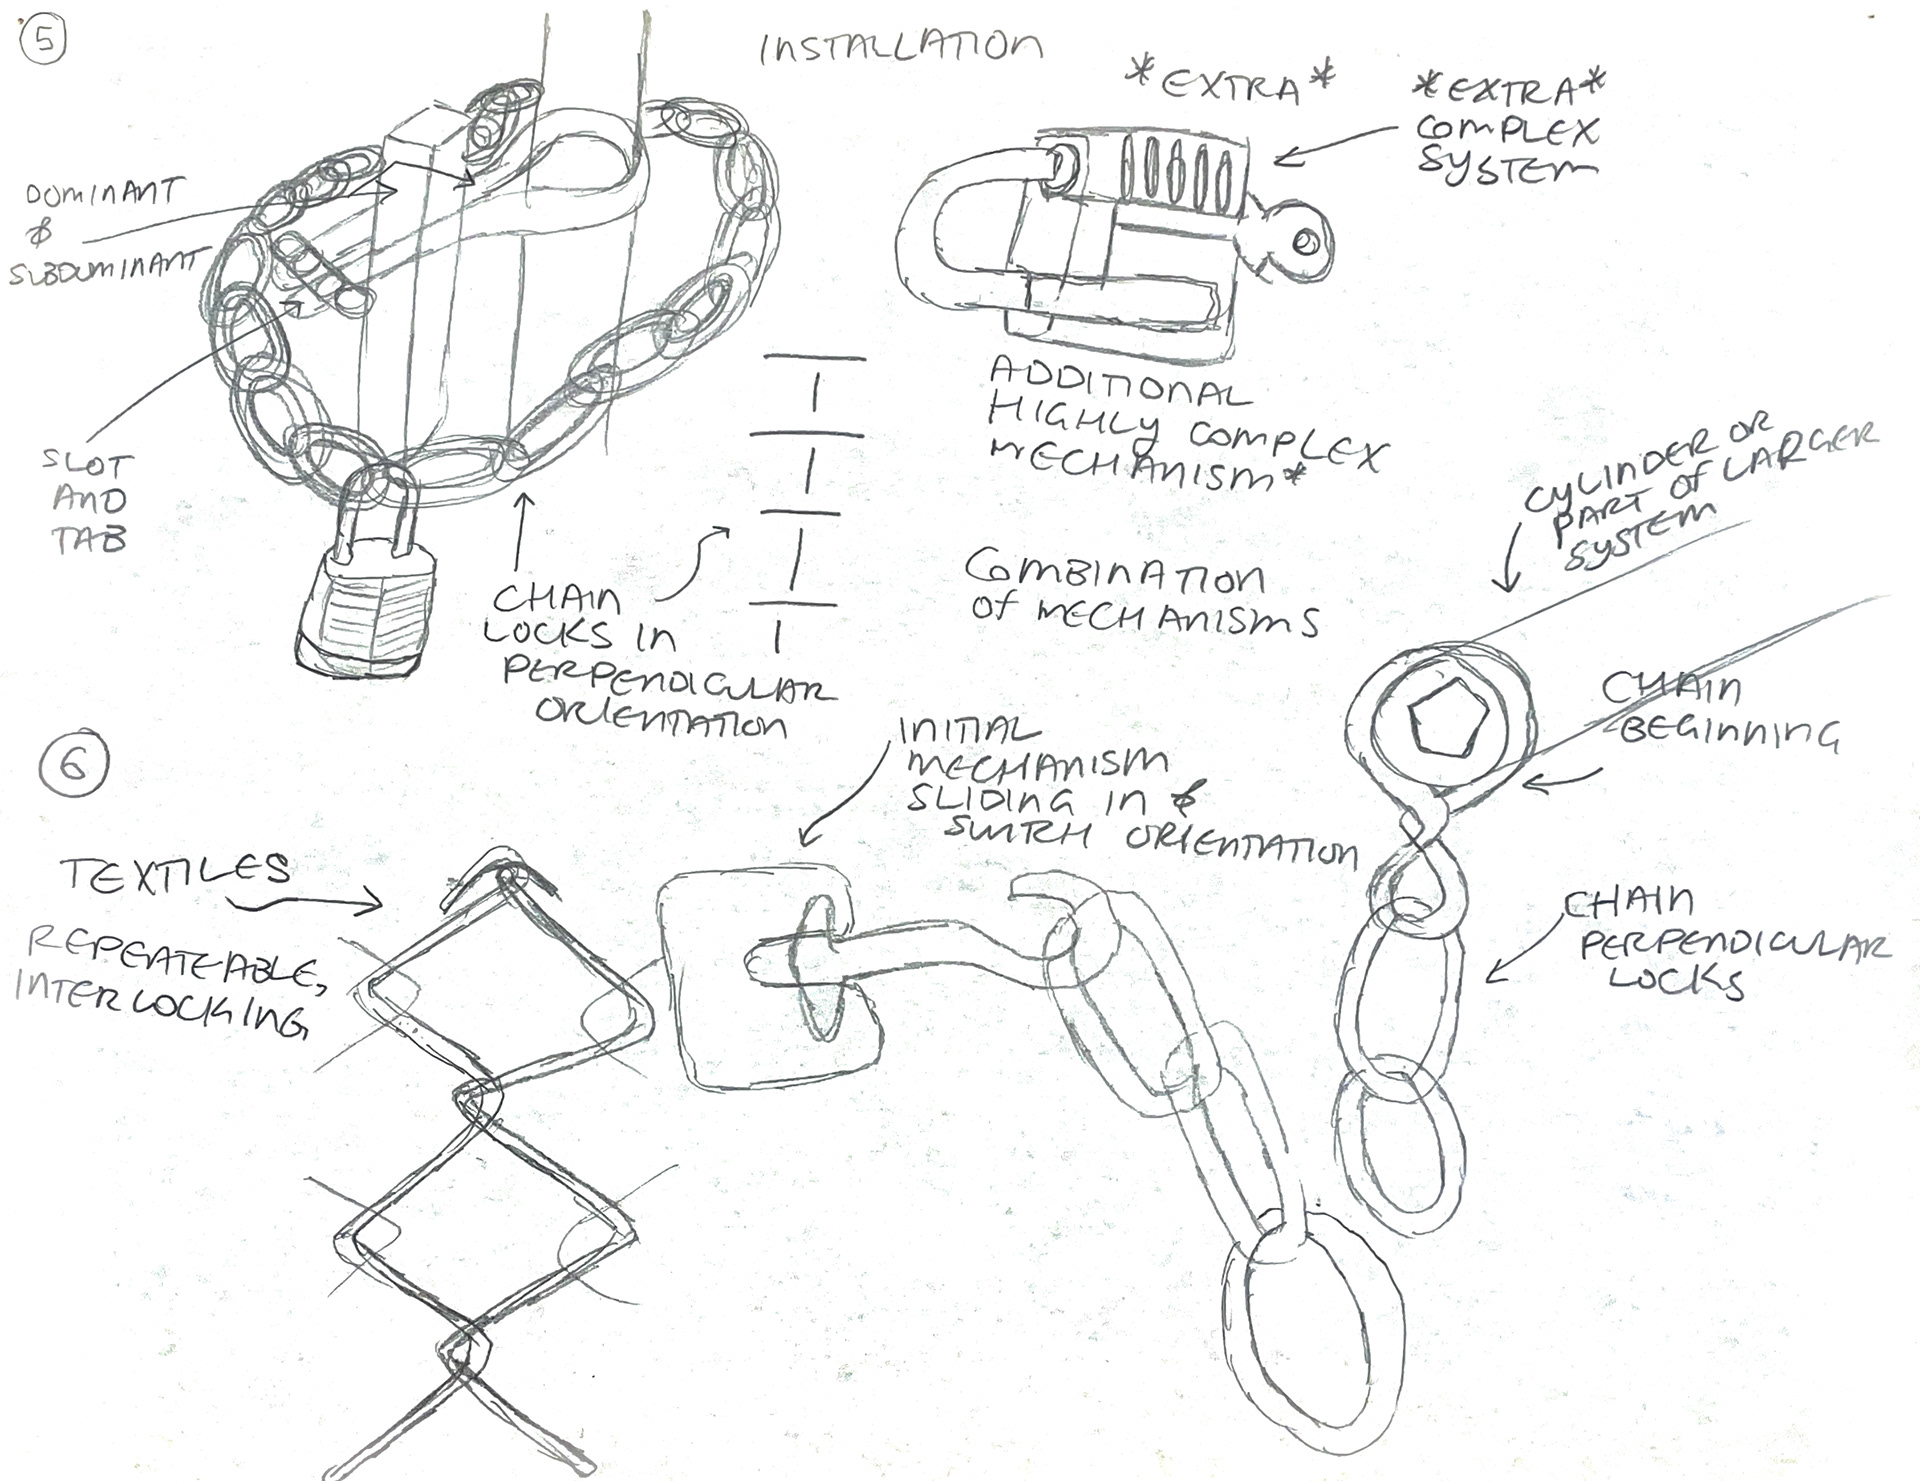 5
INSTALLATION
*EXTRA*
*EXTRA*
COMPLEX
SYSTEM
DOMINANT
&
SUBDOMINANT
SLOT
AND
TAB
CHAIN
LOCKS IN
PERPENDICULAR
ORIENTATION
ADDITIONAL
HIGHLY COMPLEX
MECHANISM*
COMBINATION
OF MECHANISMS
CYLINDER OR
PART OF LARGER
SYSTEM
CHAIN
BEGINNING
6
TEXTILES
REPEATEABLE,
INTERLOCKING
INITIAL
MECHANISM
SLIDING IN &
SWITCH ORIENTATION
CHAIN
PERPENDICULAR
LOCKS